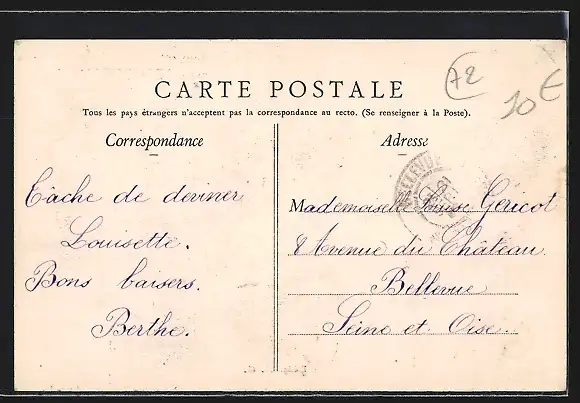 72
10€
CARTE POSTALE
Tous les pays étrangers n'acceptent pas la correspondance au recto. (Se renseigner à la Poste).
Correspondance
Adresse
Tâche de deviner
Louisette.
Bons baisers.
Berthe.
BELLEVUE
Mademoiselle Louise Géricot
8 Avenue du Château
Bellevue
Seine et Oise.